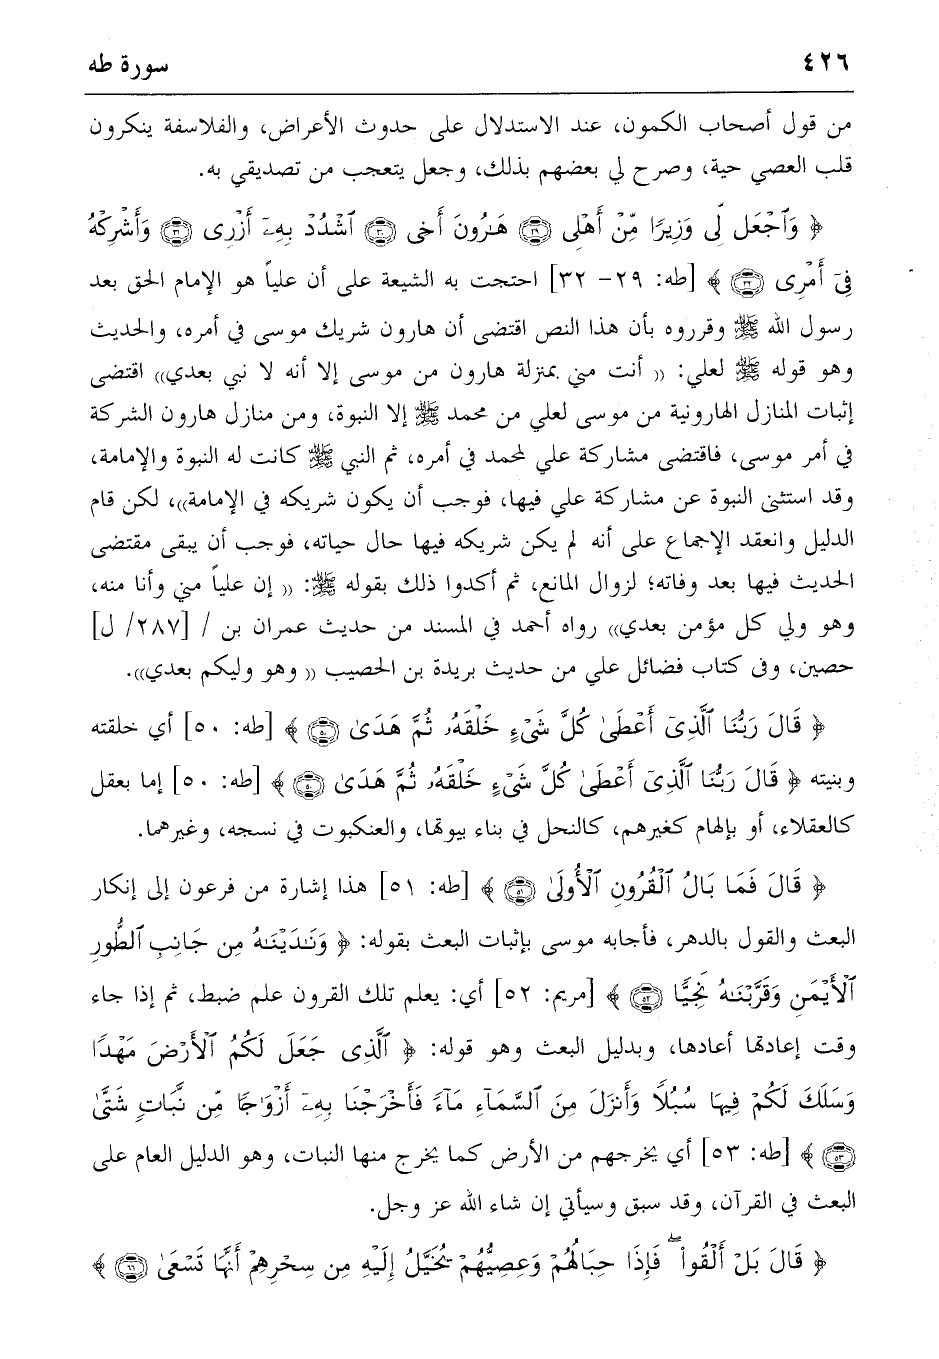 ٤٢٦ سورة طه
من قول أصحاب الكمون، عند الاستدلال على حدوث الأعراض، والفلاسفة ينكرون
قلب العصي حية، وصرح لي بعضهم بذلك، وجعل يتعجب من تصديقي به.
﴿ وَٱجْعَل لِّى وَزِيرًا مِّنْ أَهْلِى ٢٩ هَـٰرُونَ أَخِى ٣٠ ٱشْدُدْ بِهِۦٓ أَزْرِى ٣١ وَأَشْرِكْهُ
فِىٓ أَمْرِى ٣٢ ﴾ [طه: ٢٩- ٣٢] احتجت به الشيعة على أن علياً هو الإمام الحق بعد
رسول الله ﷺ وقرروه بأن هذا النص اقتضى أن هارون شريك موسى في أمره، والحديث
وهو قوله ﷺ لعلي: (( أنت مني بمنزلة هارون من موسى إلا أنه لا نبي بعدي)) اقتضى
إثبات المنازل الهارونية من موسى لعلي من محمد ﷺ إلا النبوة، ومن منازل هارون الشركة
في أمر موسى، فاقتضى مشاركة علي لمحمد في أمره، ثم النبي ﷺ كانت له النبوة والإمامة،
وقد استثنى النبوة عن مشاركة علي فيها، فوجب أن يكون شريكه في الإمامة))، لكن قام
الدليل وانعقد الإجماع على أنه لم يكن شريكه فيها حال حياته، فوجب أن يبقى مقتضى
الحديث فيها بعد وفاته؛ لزوال المانع، ثم أكدوا ذلك بقوله ﷺ: (( إن علياً مني وأنا منه،
وهو ولي كل مؤمن بعدي)) رواه أحمد في المسند من حديث عمران بن / [٢٨٧/ ل]
حصين، وفى كتاب فضائل علي من حديث بريدة بن الحصيب (( وهو وليكم بعدي)).
﴿ قَالَ رَبُّنَا ٱلَّذِىٓ أَعْطَىٰ كُلَّ شَىْءٍ خَلْقَهُۥ ثُمَّ هَدَىٰ ٥٠ ﴾ [طه: ٥٠] أي خلقته
وبنيته ﴿ قَالَ رَبُّنَا ٱلَّذِىٓ أَعْطَىٰ كُلَّ شَىْءٍ خَلْقَهُۥ ثُمَّ هَدَىٰ ٥٠ ﴾ [طه: ٥٠] إما بعقل
كالعقلاء، أو بإلهام كغيرهم، كالنحل في بناء بيوتها، والعنكبوت في نسجه، وغيرهما.
﴿ قَالَ فَمَا بَالُ ٱلْقُرُونِ ٱلْأُولَىٰ ٥١ ﴾ [طه: ٥١] هذا إشارة من فرعون إلى إنكار
البعث والقول بالدهر، فأجابه موسى بإثبات البعث بقوله: ﴿ وَنَـٰدَيْنَـٰهُ مِن جَانِبِ ٱلطُّورِ
ٱلْأَيْمَنِ وَقَرَّبْنَـٰهُ نَجِيًّا ٥٢ ﴾ [مريم: ٥٢] أي: يعلم تلك القرون علم ضبط، ثم إذا جاء
وقت إعادتها أعادها، وبدليل البعث وهو قوله: ﴿ ٱلَّذِى جَعَلَ لَكُمُ ٱلْأَرْضَ مَهْدًا
وَسَلَكَ لَكُمْ فِيهَا سُبُلًا وَأَنزَلَ مِنَ ٱلسَّمَآءِ مَآءً فَأَخْرَجْنَا بِهِۦٓ أَزْوَٰجًا مِّن نَّبَاتٍ شَتَّىٰ
٥٣ ﴾ [طه: ٥٣] أي يخرجهم من الأرض كما يخرج منها النبات، وهو الدليل العام على
البعث في القرآن، وقد سبق وسيأتي إن شاء الله عز وجل.
﴿ قَالَ بَلْ أَلْقُوا۟ ۖ فَإِذَا حِبَالُهُمْ وَعِصِيُّهُمْ يُخَيَّلُ إِلَيْهِ مِن سِحْرِهِمْ أَنَّهَا تَسْعَىٰ ٦٦ ﴾